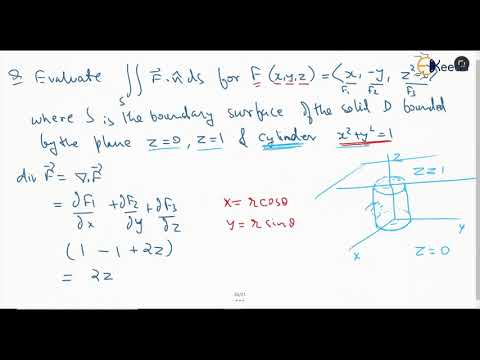 Q. Evaluate ∬ F⃗.n̂ ds for F (x,y,z) = ⟨x, -y, z²-1⟩
S F1 F2 F3
where S is the boundary surface of the solid D bounded
by the plane z=0, z=1 & cylinder x²+y²=1
div F⃗ = ∇.F⃗
= ∂F1/∂x + ∂F2/∂y + ∂F3/∂z
x = r cosθ
y = r sinθ
(1 - 1 + 2z)
= 2z
z
z=1
y
x
z=0